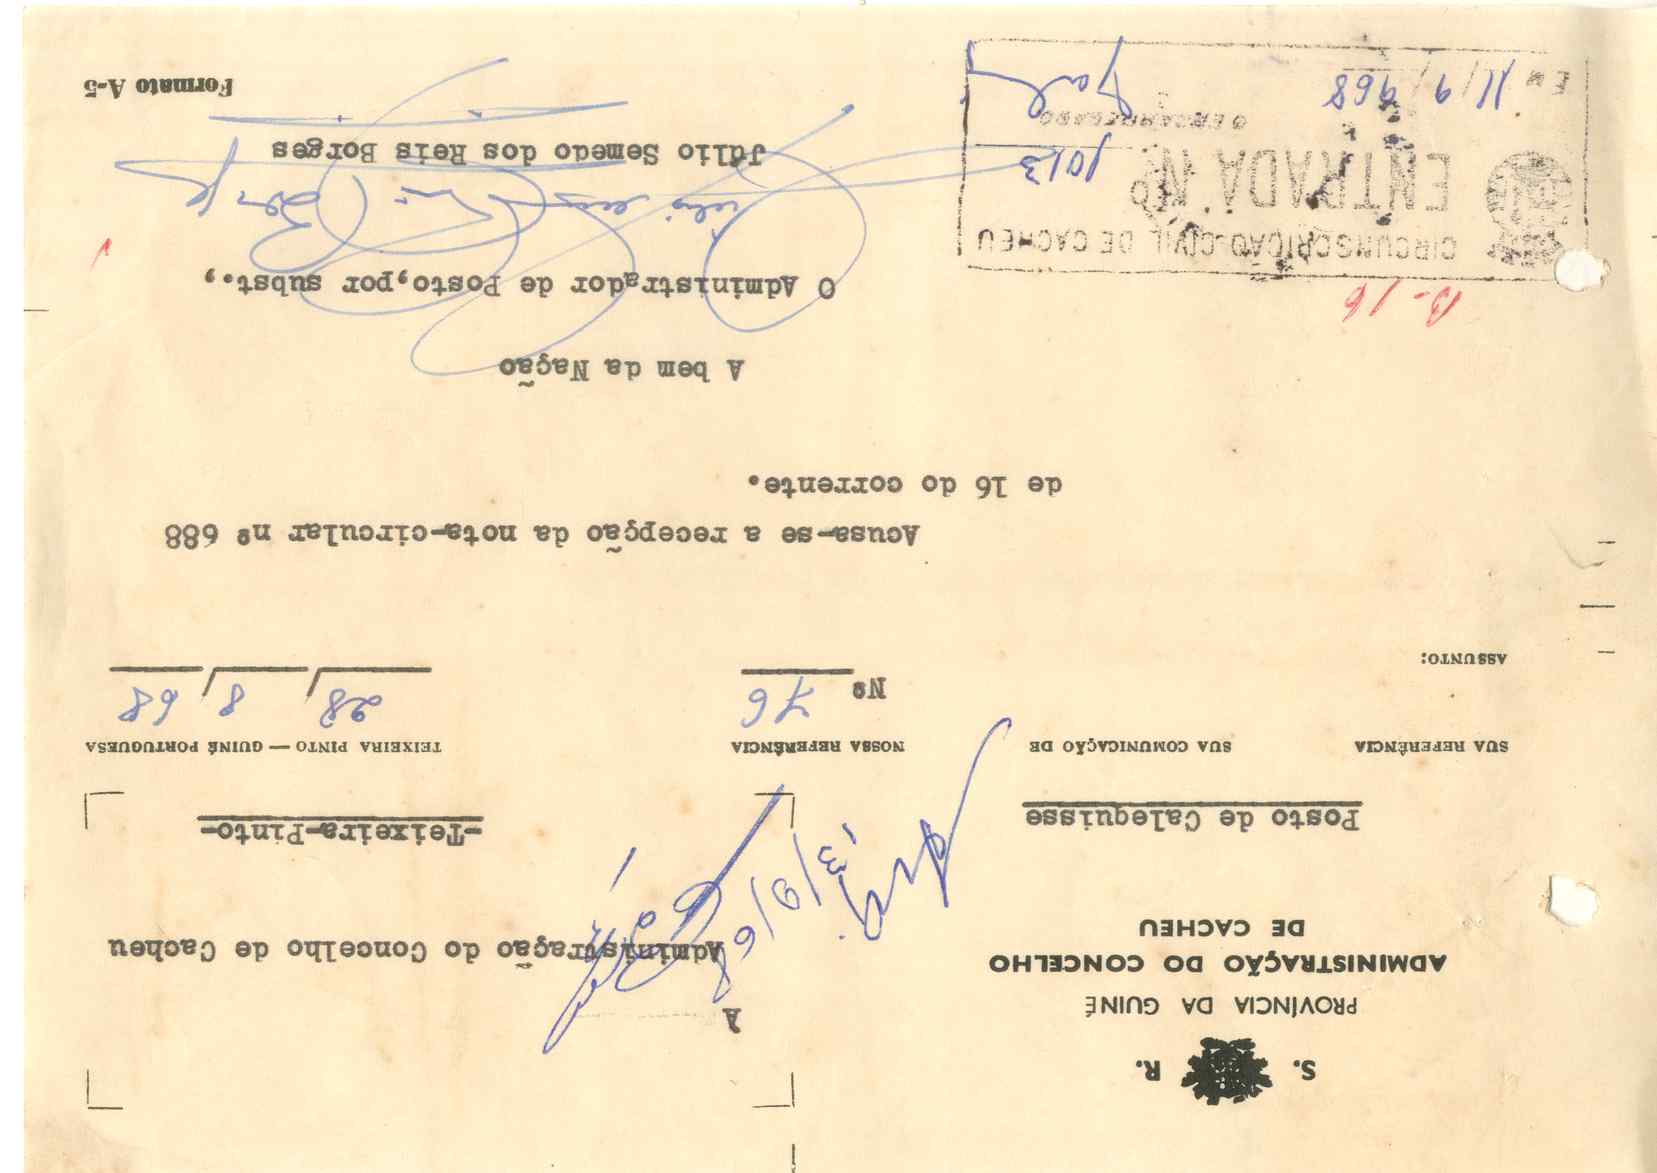 S. R.
PROVÍNCIA DA GUINÉ
ADMINISTRAÇÃO DO CONCELHO
DE CACHEU
Posto de Calequisse
À
Administração do Concelho de Cacheu
-Teixeira-Pinto-
SUA REFERÊNCIA
SUA COMUNICAÇÃO DE
NOSSA REFERÊNCIA
TEIXEIRA PINTO — GUINÉ PORTUGUESA
Nº 76
28/ 8/ 68
ASSUNTO:
Acusa-se a recepção da nota-circular nº 688
de 16 do corrente.
A bem da Nação
O Administrador de Posto,por subst.,
Júlio Semedo dos Reis Borges
B-16
CIRCUNSCRIÇÃO CIVIL DE CACHEU
ENTRADA Nº 1013
O ENCARREGADO
EM 11/ 9/ 968
Formato A-5